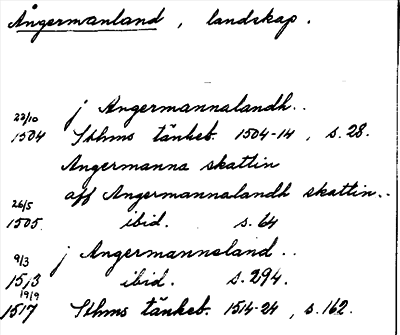 Ångermanland, landskap.
j Angermannalandh..
22/10
1504 Sthms tänkeb. 1504-14, s. 28.
Angermanna skattin
aff Angermannalandh skattin..
26/5
1505. ibid. s. 64
j Angermanneland..
9/3
1513 ibid. s. 294.
19/9
1517 Sthms tänkeb. 1514-24, s. 162.